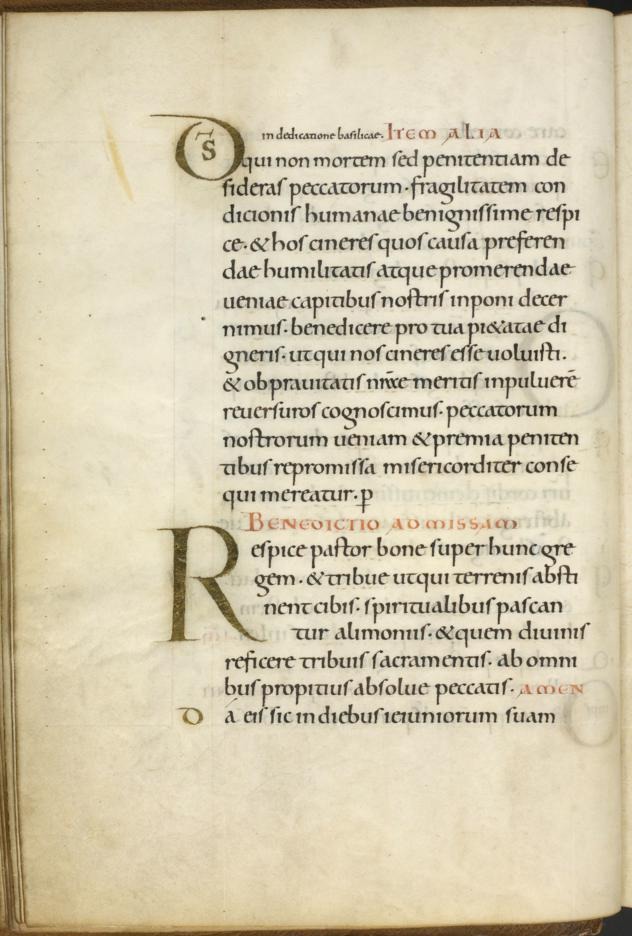 in dedicatione basilicae. ITEM ALIA
DS̄ qui non mortem sed penitentiam de
sideras peccatorum. fragilitatem con
dicionis humanae benignissime respi
ce. & hos cineres quos causa preferen
dae humilitatis atque promerendae
ueniae capitibus nostris inponi decer
nimus. benedicere pro tua pi&atae di
gneris. ut qui nos cineres esse uoluisti.
& ob prauitatis meritis inpuluerē
reuersuros cognoscimus. peccatorum
nostrorum ueniam & premia peniten
tibus repromissa misericorditer conse
qui mereatur. p
BENEDICTIO AD MISSAM
Respice pastor bone super hunc gre
gem. & tribue ut qui terrenis absti
nent cibis. spiritualibus pascan
tur alimoniis. & quem diuinis
reficere tribuis sacramentis. ab omni
bus propitius absolue peccatis. AMEN
Da eis sic in diebus ieiuniorum suam